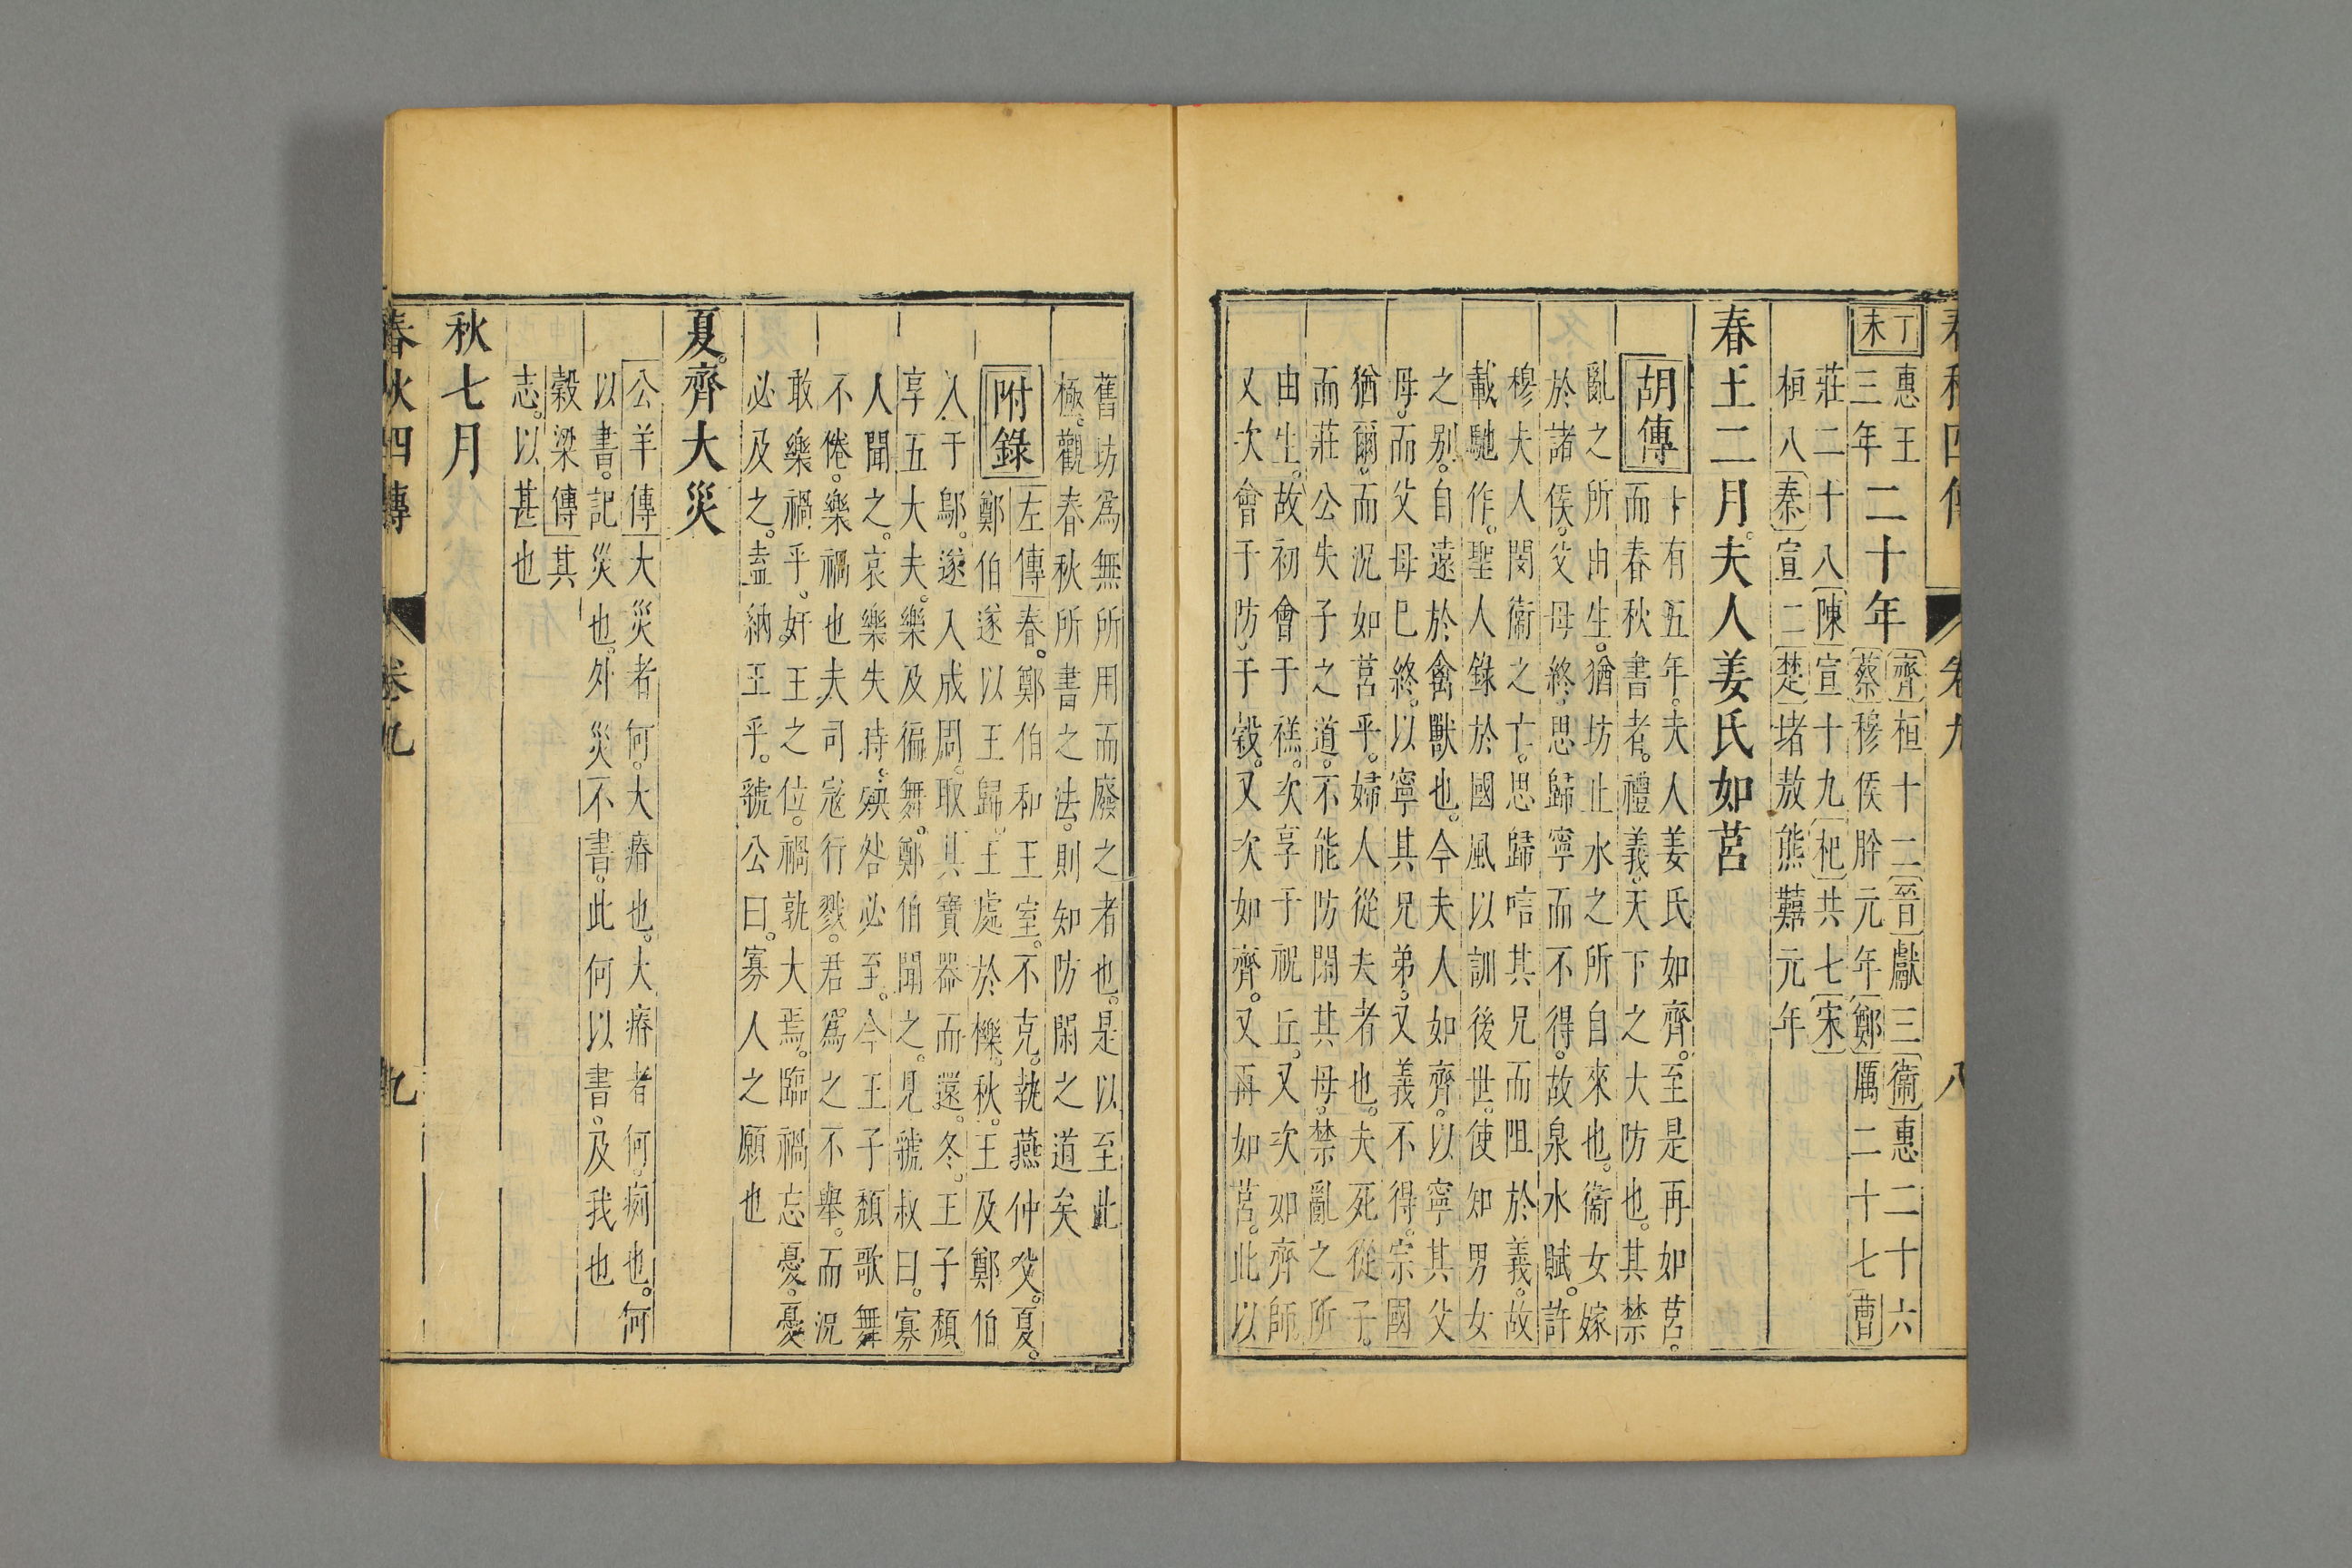 春秋四傳 卷九 八
丁未
惠王
三年
二十年
齊桓十二晉獻三衞惠二十六
蔡穆侯肸元年鄭厲二十七曹
莊二十八陳宣十九杞共七宋
桓八秦宣二楚堵敖熊囏元年
春王二月夫人姜氏如莒
胡傳
十有五年夫人姜氏如齊至是再如莒
而春秋書者禮義天下之大防也其禁
亂之所由生猶坊止水之所自來也衞女嫁
於諸侯父母終思歸寧而不得故泉水賦許
穆夫人閔衞之亡思歸唁其兄而阻於義故
載馳作聖人錄於國風以訓後世使知男女
之别自遠於禽獸也今夫人如齊以寧其父
母而父母已終以寧其兄弟又義不得宗國
猶爾而況如莒乎婦人從夫者也夫死從子
而莊公失子之道不能防閑其母禁亂之所
由生故初會于禚次享于祝丘又次如齊師
又次會于防于榖又次如齊又再如莒此以
舊坊爲無所用而廢之者也是以至此
極觀春秋所書之法則知防閑之道矣
附錄
左傳春鄭伯和王室不克執燕仲父夏
鄭伯遂以王歸王處於櫟秋王及鄭伯
入于鄔遂入成周取其寶器而還冬王子頽
享五大夫樂及徧舞鄭伯聞之見虢叔曰寡
人聞之哀樂失時殃咎必至今王子頽歌舞
不倦樂禍也夫司寇行戮君爲之不舉而況
敢樂禍乎奸王之位禍孰大焉臨禍忘憂憂
必及之盍納王乎虢公曰寡人之願也
夏齊大災
公羊傳大災者何大瘠也大瘠者何㾐也何
以書記災也外災不書此何以書及我也
榖梁傳其
志以甚也
秋七月
春秋四傳 卷九 九